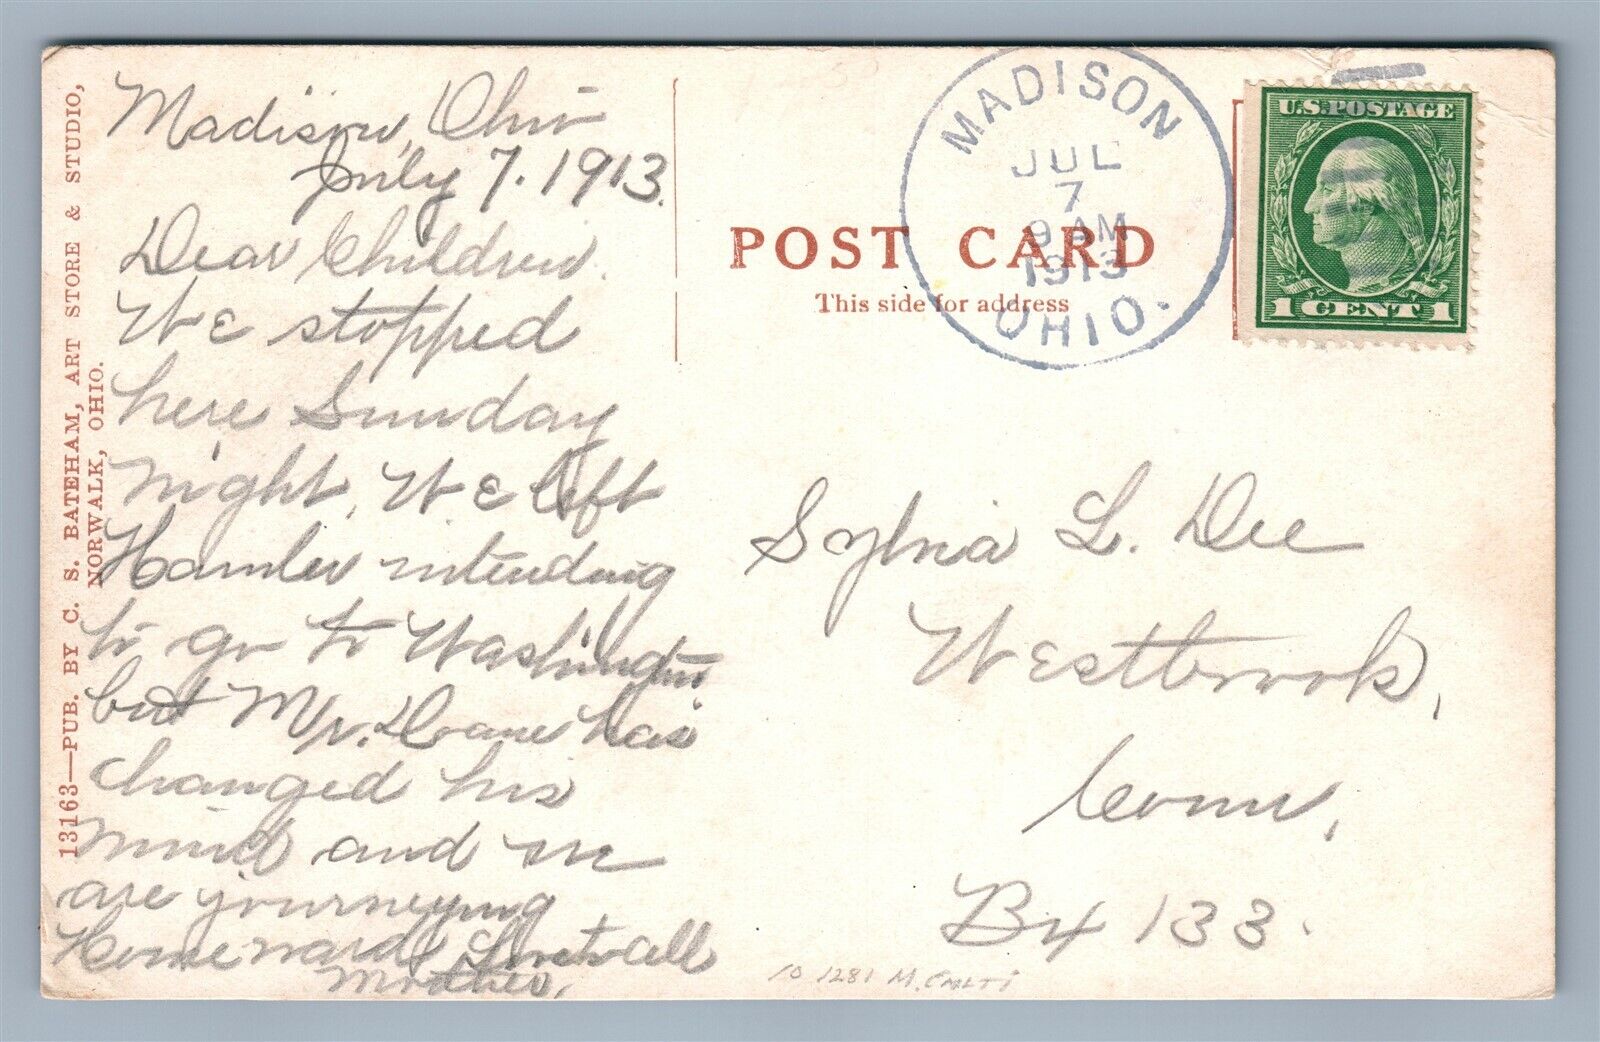 Madison, Ohio
July 7. 1913.
Dear Children.
We stopped
here Sunday
night. We left
Hamler intending
to go to Washington
but Mr. Doane has
changed his
mind and we
are journeying
Homeward. Love to all
Mother.
13163—PUB. BY C. S. BATEHAM, ART STORE & STUDIO,
NORWALK, OHIO.
POST CARD
This side for address
MADISON
JUL
7
9 AM
1913
OHIO.
U.S. POSTAGE
1 CENT 1
Sylvia L. Dee
Westbrook,
Conn.
Bx 133.
10 1281 M.